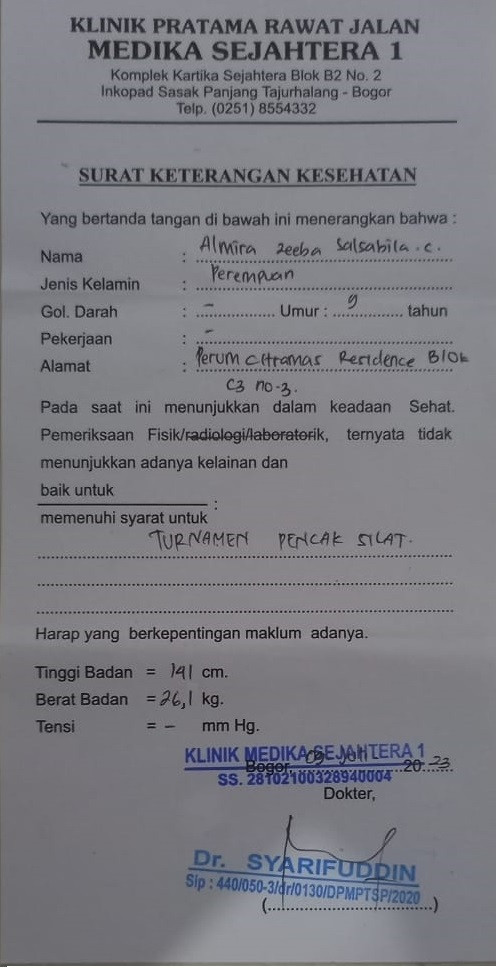 KLINIK PRATAMA RAWAT JALAN
MEDIKA SEJAHTERA 1
Komplek Kartika Sejahtera Blok B2 No. 2
Inkopad Sasak Panjang Tajurhalang - Bogor
Telp. (0251) 8554332
SURAT KETERANGAN KESEHATAN
Yang bertanda tangan di bawah ini menerangkan bahwa :
Nama : Almira zeeba Salsabila.C.
Jenis Kelamin : Perempuan
Gol. Darah : - Umur : 9 tahun
Pekerjaan : -
Alamat : Perum Citramas Residence Blok
C3 no-3.
Pada saat ini menunjukkan dalam keadaan Sehat.
Pemeriksaan Fisik/radiologi/laboratorik, ternyata tidak
menunjukkan adanya kelainan dan
baik untuk
memenuhi syarat untuk :
TURNAMEN PENCAK SILAT.
Harap yang berkepentingan maklum adanya.
Tinggi Badan = 141 cm.
Berat Badan = 26,1 kg.
Tensi = - mm Hg.
KLINIK MEDIKA SEJAHTERA 1
Bogor, 03 Juli 2023
SS. 28102100328940004
Dokter,
Dr. SYARIFUDDIN
Sip : 440/050-3/dr/0130/DPMPTSP/2020
(................................)